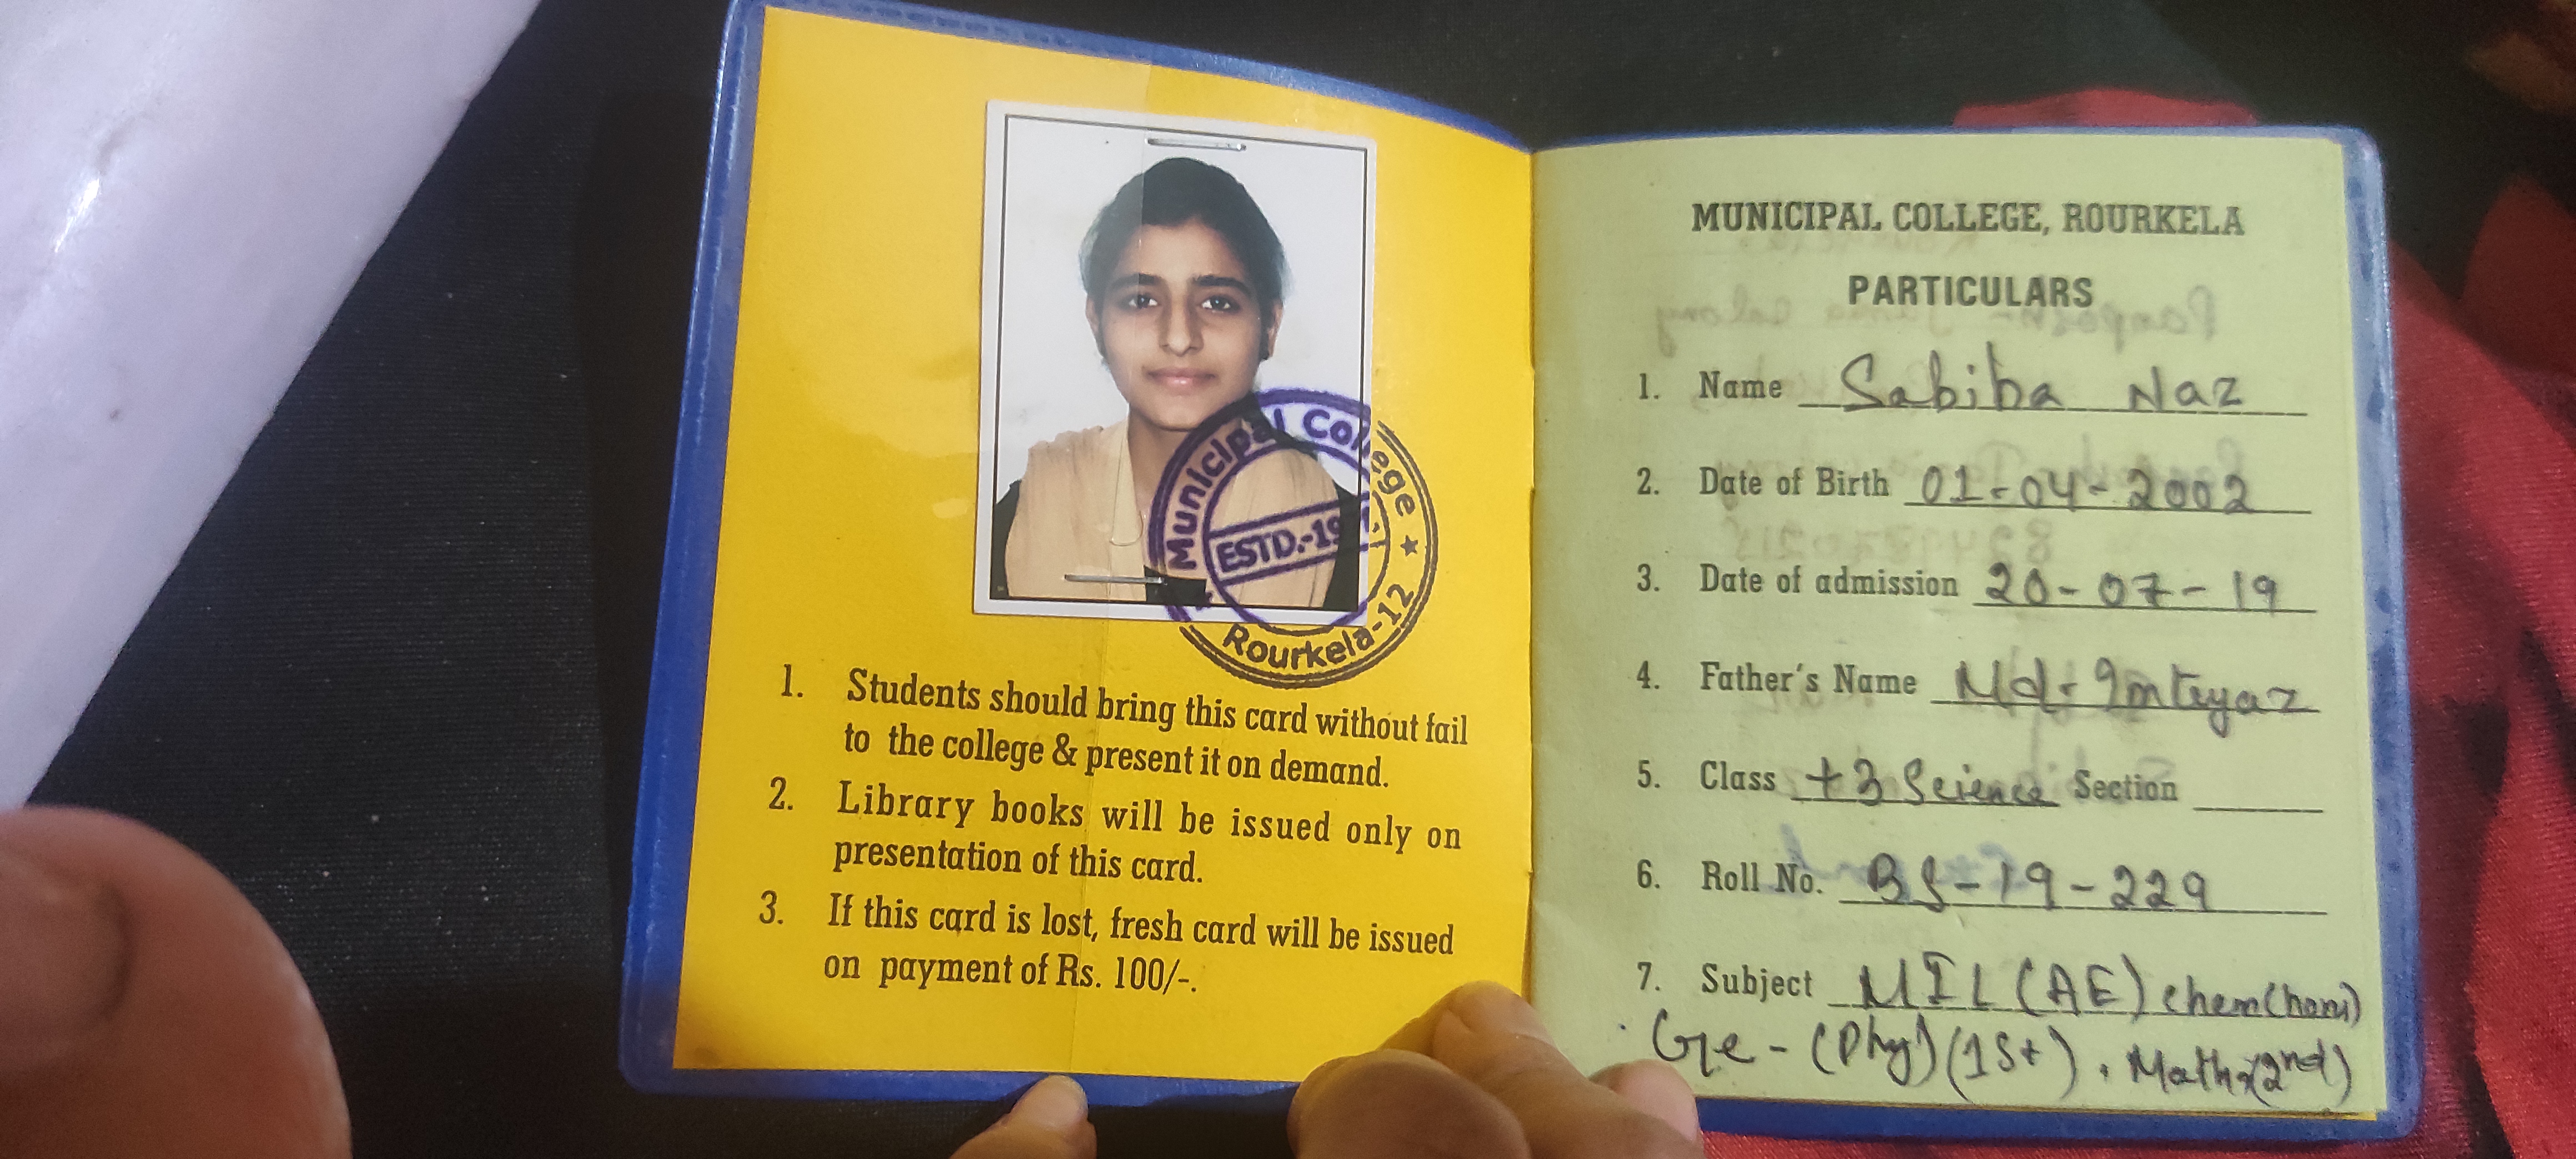 Municipal College
ESTD.-19
Rourkela-12
1. Students should bring this card without fail
to the college & present it on demand.
2. Library books will be issued only on
presentation of this card.
3. If this card is lost, fresh card will be issued
on payment of Rs. 100/-.
MUNICIPAL COLLEGE, ROURKELA
PARTICULARS
1. Name Sabiba Naz
2. Date of Birth 01-04-2002
3. Date of admission 20-07-19
4. Father's Name Md. Imteyaz
5. Class +3 Science Section
6. Roll No. BS-19-229
7. Subject MIL (AE) chem(hons)
Ge - (Phy) (1st), Maths(2nd)